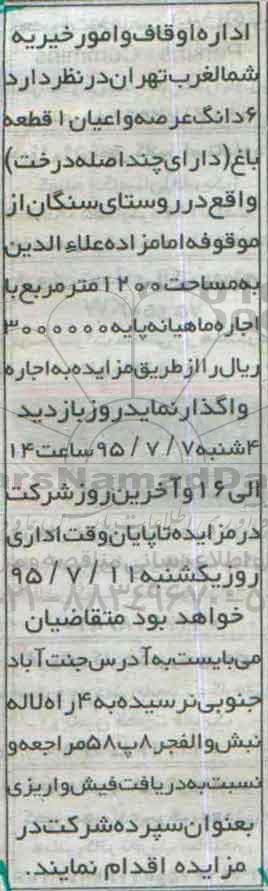 اداره اوقاف و امور خیریه
شمالغرب تهران در نظر دارد
۶ دانگ عرصه و اعیان ۱ قطعه
باغ (دارای چند اصله درخت)
واقع در روستای سنگان از
موقوفه امامزاده علاء الدین
به مساحت ۱۲۰۰ متر مربع با
اجاره ماهیانه پایه ۳۰۰۰۰۰۰
ریال را از طریق مزایده به اجاره
واگذار نماید روز بازدید
۴ شنبه ۷ / ۷ / ۹۵ ساعت ۱۴
الی ۱۶ و آخرین روز شرکت
در مزایده تا پایان وقت اداری
روز یکشنبه ۱۱ / ۷ / ۹۵
خواهد بود متقاضیان
می بایست به آدرس جنت آباد
جنوبی نرسیده به ۴ راه لاله
نبش والفجر ۸ پ ۵۸ مراجعه و
نسبت به دریافت فیش واریزی
بعنوان سپرده شرکت در
مزایده اقدام نمایند.